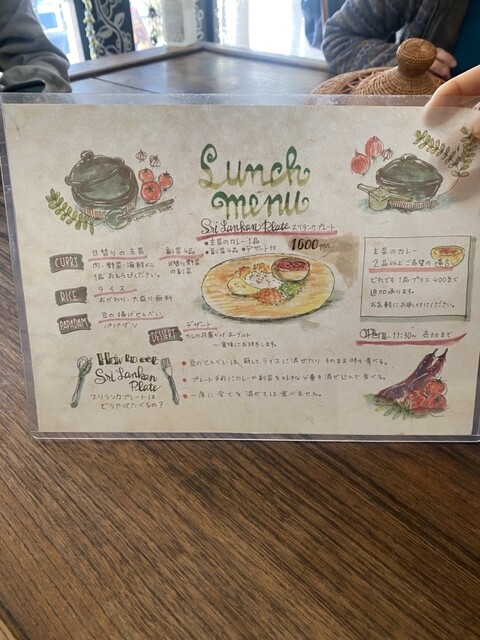 Lunch
menu
Sri Lankan Plate スリランカプレート
●主菜のカレー1品
●副菜4品 ●デザート付
1600 yen
CURRY
日替りの主菜
肉・野菜・海鮮から
1品お選びください。
副菜4品
日替り野菜
の副菜
RICE
ライス
おかわり・大盛り無料
PAPADAM
豆の揚げせんべい
パパダン
DESSERT
デザート
カレの花蜜がけヨーグルト
〜食後にお持ちします。
主菜のカレー
2品以上ご希望の場合
どれでも1品プラス400円で
追加承ります。
お気軽にお申し付けください。
OPEN 11:30〜 売切まで
How to eat
Sri Lankan
Plate
スリランカプレートは
どうやってたべるの?
●豆のせんべいは、崩してライスに混ぜたり そのまま時々食べる。
●プレート手前にカレーや副菜を好きな分量を混ぜ込んで食べる。
●一度に全てを混ぜては食べません。